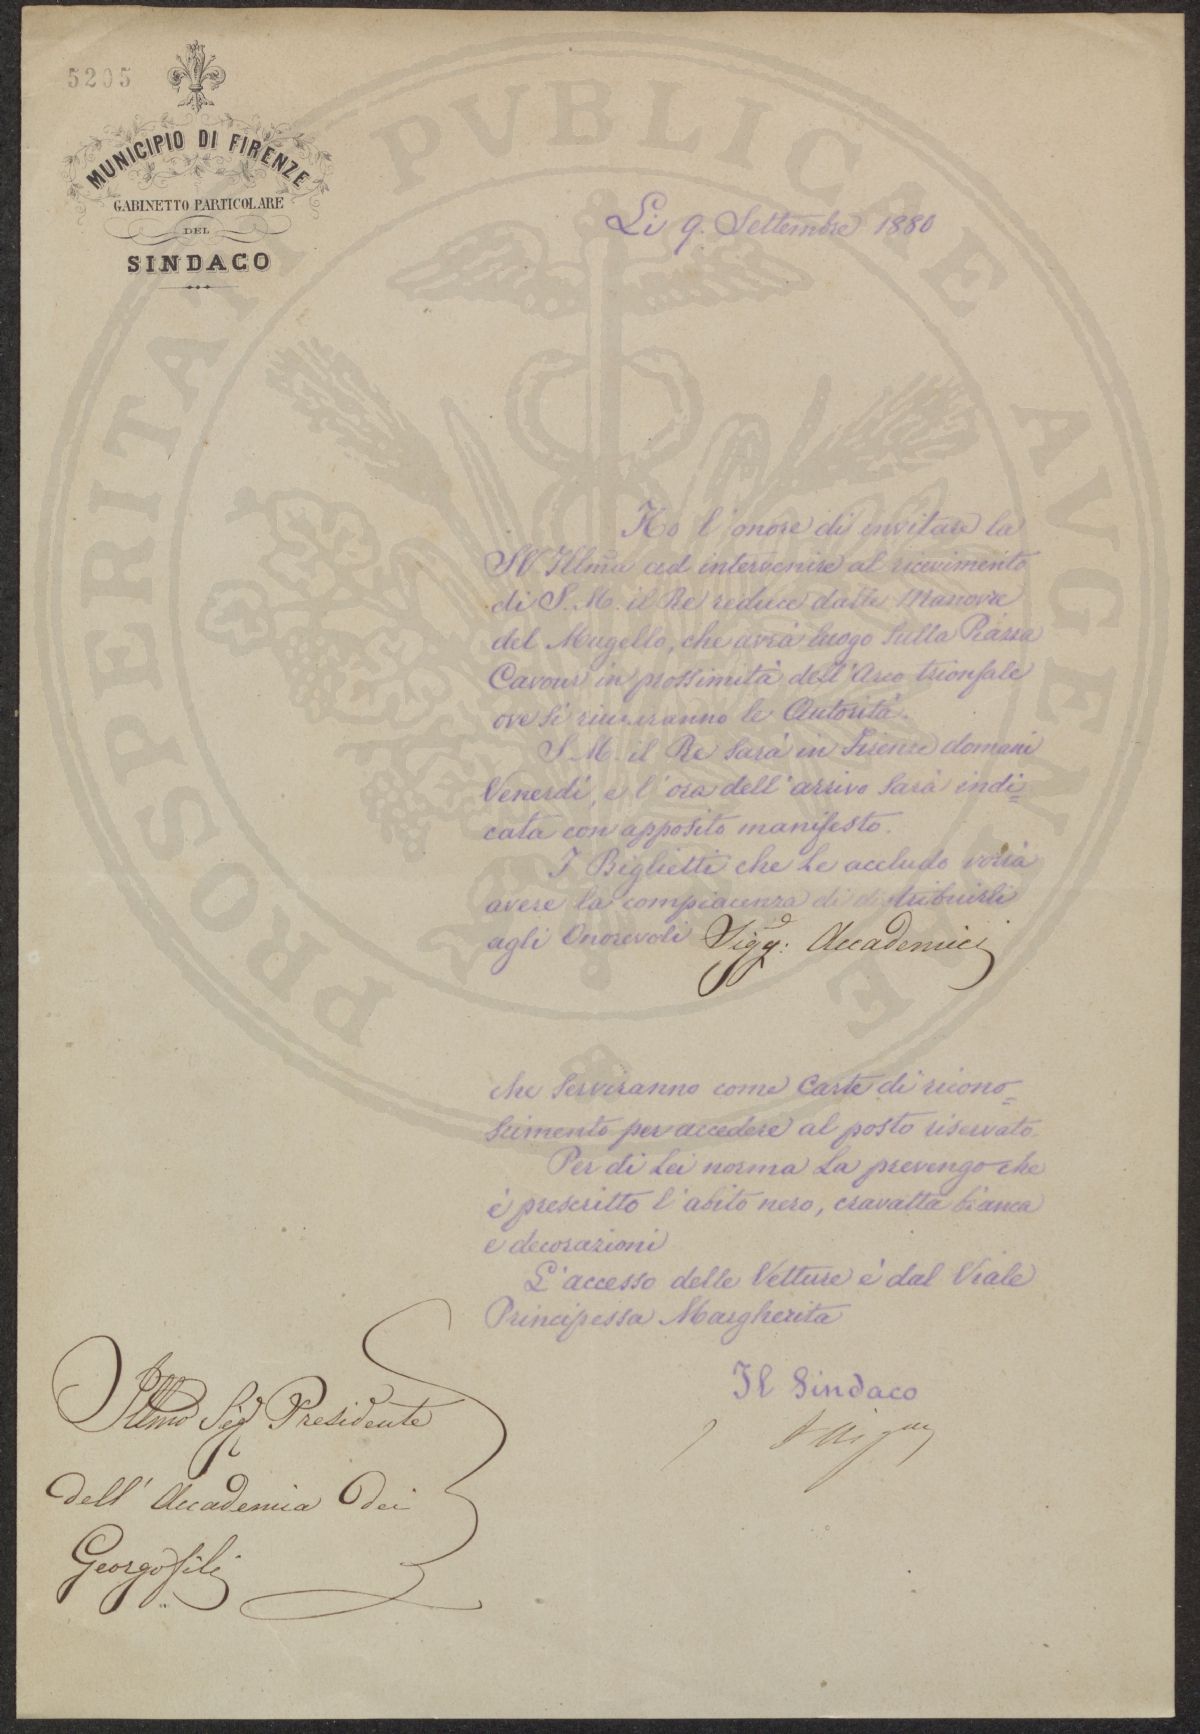 5205
MUNICIPIO DI FIRENZE
GABINETTO PARTICOLARE
DEL
SINDACO
Li 9. Settembre 1880
Ho l'onore di invitare la
SV Illm̃a ad intervenire al ricevimento
di S. M. il Re reduce dalle Manovre
del Mugello, che avrà luogo sulla Piazza
Cavour in prossimità dell'Arco trionfale
ove si riuniranno le Autorità.
S. M. il Re sarà in Firenze domani
Venerdì, e l'ora dell'arrivo sarà indi=
cata con apposito manifesto.
I Biglietti che Le accludo vorrà
avere la compiacenza di distribuirli
agli Onorevoli Sigg: Accademici
che serviranno come Carte di ricono=
scimento per accedere al posto riservato.
Per di Lei norma La prevengo che
è prescritto l'abito nero, cravatta bianca
e decorazioni
L'accesso delle Vetture è dal Viale
Principessa Margherita
Il Sindaco
Illmo Sig Presidente
dell'Accademia dei
Georgofili
PROSPERITATI PVBLICAE AVGENDAE